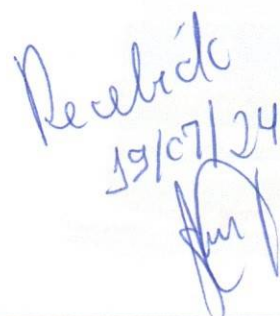 Recebido
19/07/24